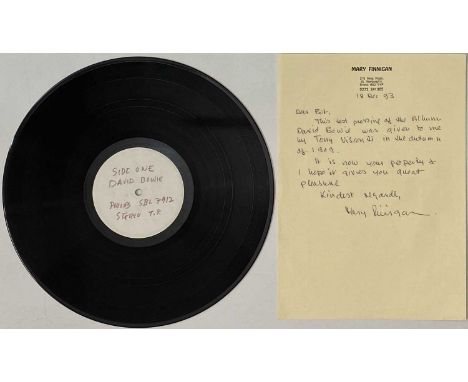 SIDE ONE
DAVID BOWIE
PHILIPS SBL 7912
STEREO T.P.
MARY FINNIGAN
18 Dec 93
Dear Bob,
This test pressing of the Album
David Bowie was given to me
by Tony Visconti in the autumn
of 1969.
It is now your property &
I hope it gives you great
pleasure
Kindest regards,
Mary Finnigan